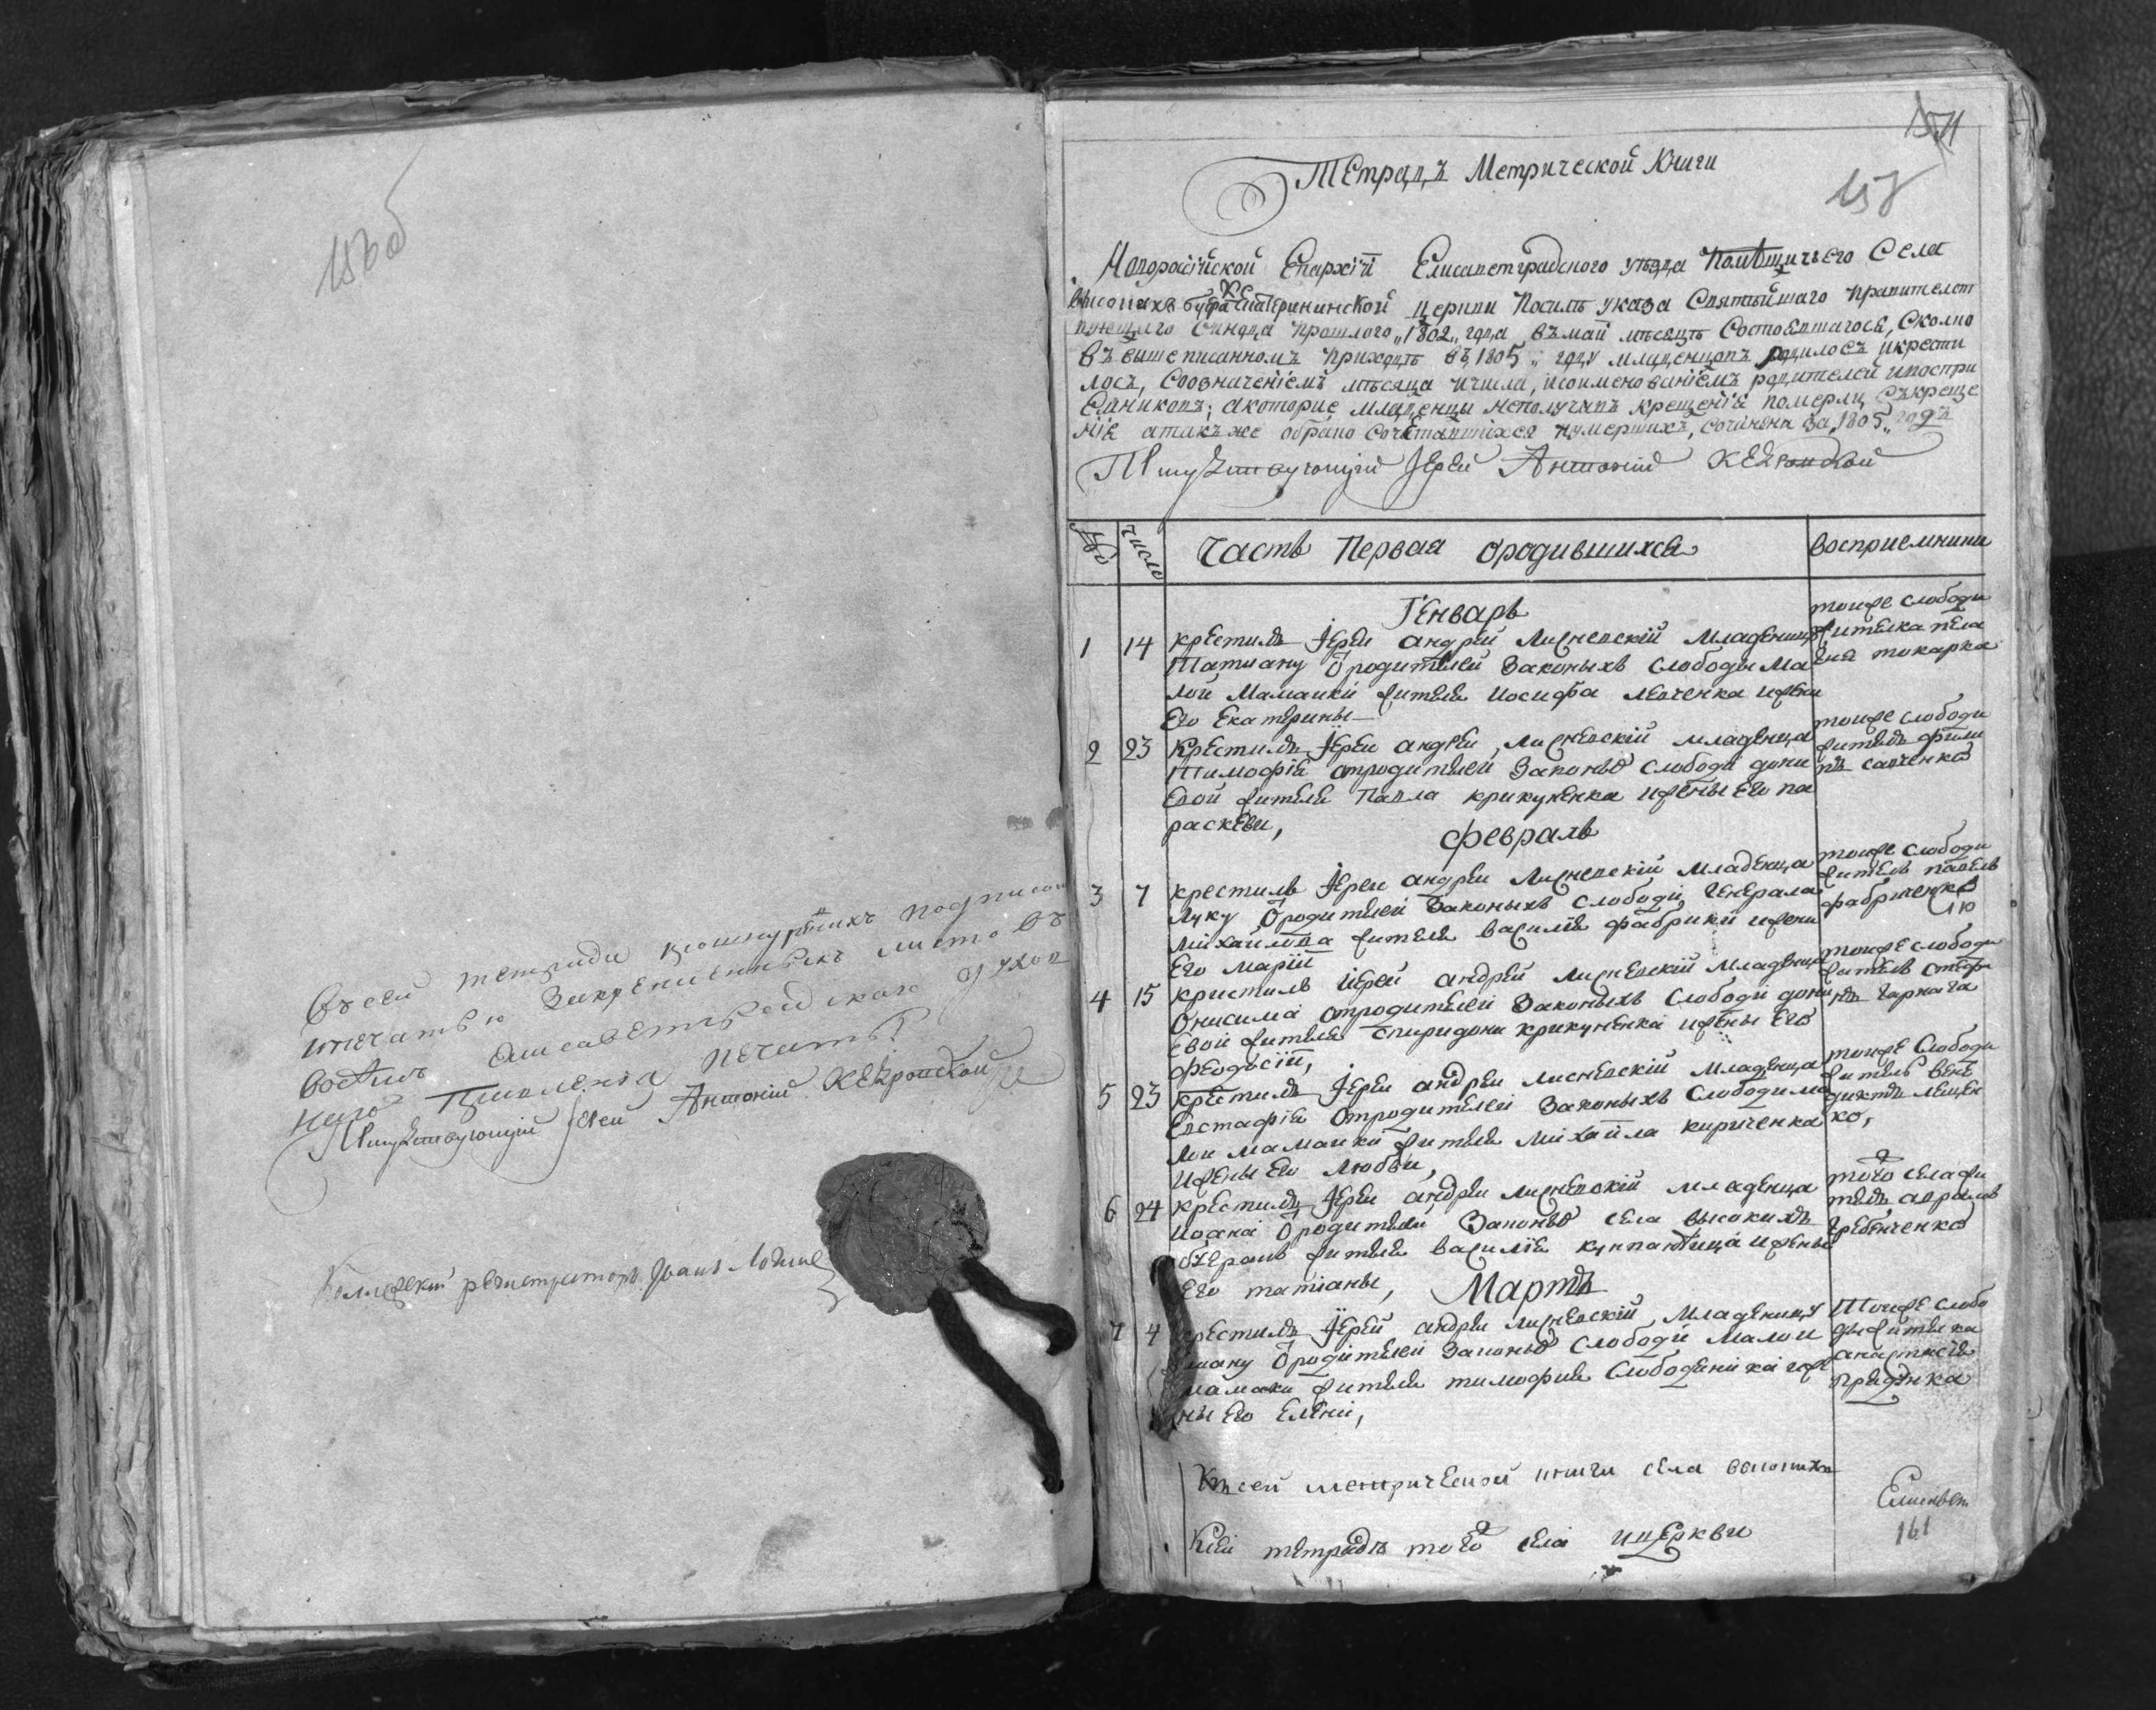 153 об
Въ сей тетради прошнурѣнихъ подписом
ипечатью закрепиленныхъ листовъ
восѣмь Елисаветградского духов
наго Правленія печать
Присудствующий Іерей Антоній Кедровской
Колежский регистраторъ Иванъ
157
Тетрадъ Метрической Книги
Новоросійской Епархіи Елисаветградского уѣзда Помѣщичьего Села
Високихъ буераКЪ Екатерининской церкви Посилѣ указа Святѣйшаго правителст
вующаго Синода прошлого „1802„ года въ май мѣсяцѣ Состоявшагося, Сколко
въ вышеписанномъ приходѣ въ 1805„ году младенцовъ родилосъ икрести
лосъ, Соозначеніемъ мѣсяца ичисла, ипоименованіемъ родителей ивоспри
емниковъ; акоторие младенцы неполучивъ крещенія померли Съкреще
нія атакъ же обрако сочетавшихся иумершихъ, сочинена за „1805„ годъ
Присудствующий Іерей Антоній Кедровской
№ число Часть Первая ородившихся восприемники
Генварь
1 14 крестилъ Іерей андрей Лисневскій Младеницу
Татиану Ѿродителей Законыхъ слободы Ма
лой Мамайки жителя Иосифа левченка ижени
Его Екатерины
тойже слободи
жителка пела
гея токарка
2 23 Крестилъ Іерей андрей, Лисневскій младенца
Тимофія отродителей Законыхъ слободи дони
евой жителя Павла крикуненка ижены Его па
раскеви,
тойже слободи
житель фили
пъ савченко
февраль
3 7 крестилъ Іерей андрей Лисневскій младенца
Луку Ѿродителей Законыхъ слободи, Генерала
Михайлова жителя василія фабрики ижени
Его Маріи
тойже слободи
житель павелъ
фабриченко
4 15 кристилъ Иерей андрей лисневскій младенца
Онисима отродителей Законыхъ слободи дони
евой жителя Спиридона крикуненка ижены Его
феодосіи,
тойже слободи
житель стефа
нъ гарнага
5 23 крестилъ Іерей андрей лисневскій младенца
Евстафія отродителей Законыхъ Слободи ма
лой мамайки жителя михайла кириченка
ижены Его любви,
тойже Слободи
житель вене
диктъ лещен
ко,
6 24 крестилъ Іерей андрей лисневскій младенца
Иоана Ѿродителей Законыхъ села високихъ
буеракъ жителя василія ижены
Его татіаны,
того села жи
тель аврамъ
гребенченко
Мартъ
7 4 крестилъ Іерей андрей лисневскій Младеницу
Ѿродителей Законыхъ слободи малой
мамайки жителя тимофия Слободеника иже
ны Его Елени,
Тойже слобо
ды жителка
анастасія
придѣнка
Ксей метрической книги села високихъ
Ксей тетрадѣ того села ицеркви
Елисавет
161